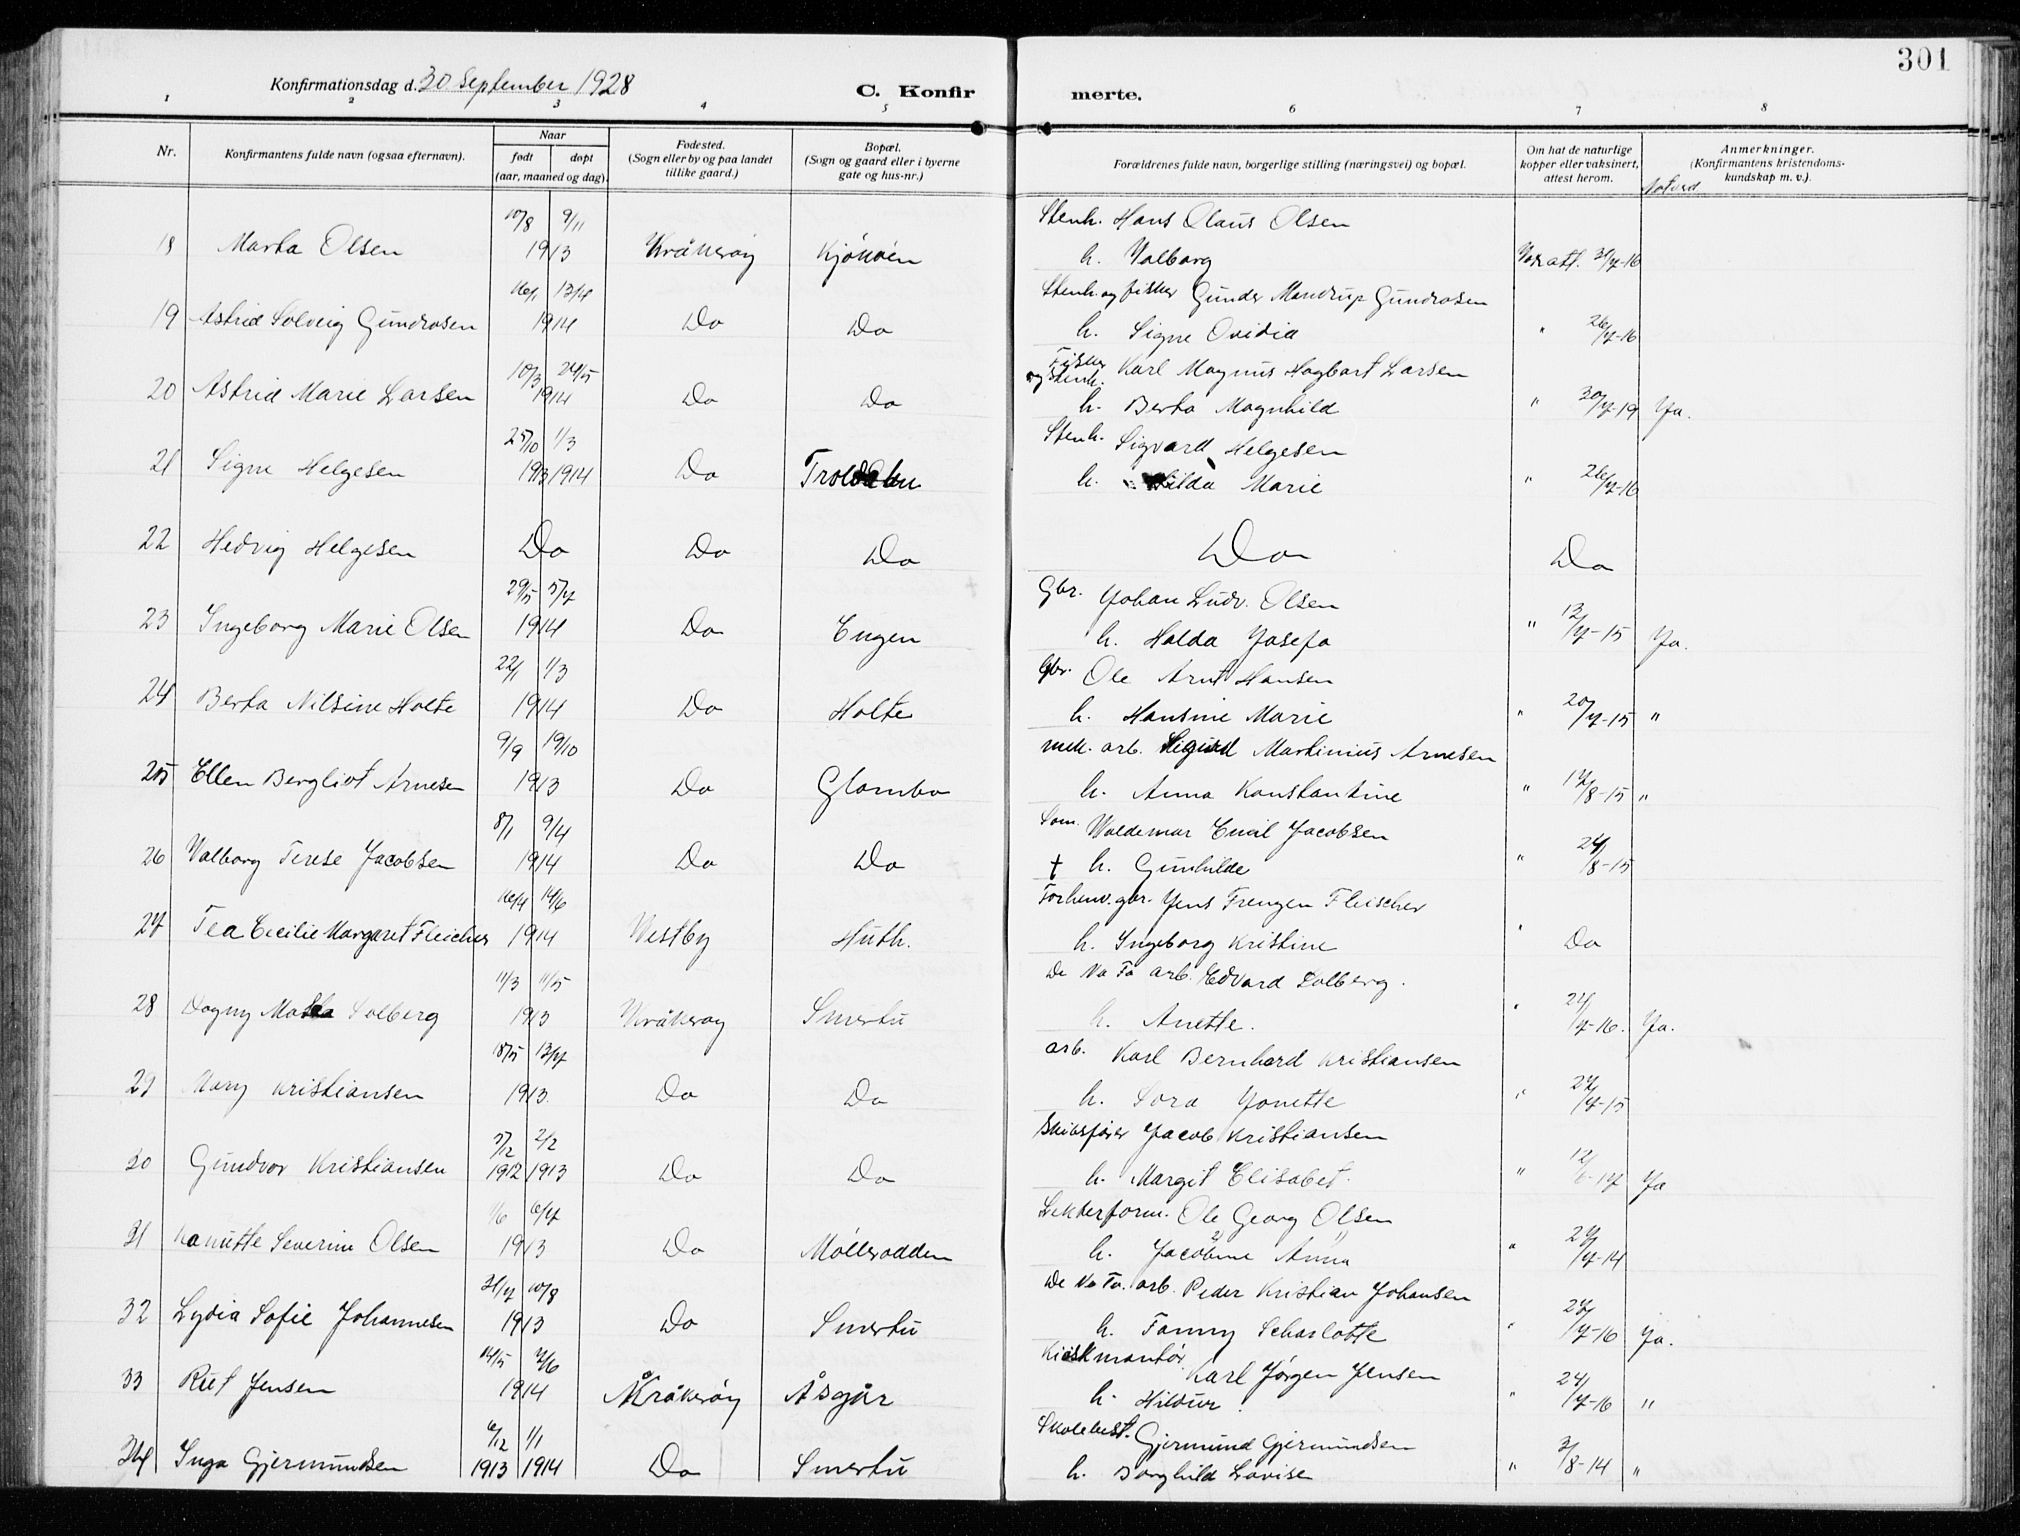 301
Konfirmationsdag d. 30 September 1928
C. Konfirmerte.
1 2 3 4 5 6 7 8
Nr.
Konfirmantens fulde navn (ogsaa efternavn).
Naar
født døpt
(aar, maaned og dag).
Fødested.
(Sogn eller by og paa landet
tillike gaard.)
Bopæl.
(Sogn og gaard eller i byerne
gate og hus-nr.)
Forældrenes fulde navn, borgerlige stilling (næringsvei) og bopæl.
Om hat de naturlige
kopper eller vaksinert,
attest herom.
Anmerkninger.
(Konfirmantens kristendoms-
kundskap m. v.).
10/8 9/11 Stenh. Hans Olaus Olsen
18 Marta Olsen 1913 Kråkerøy Kjøkøen h. Valborg 31/7-16
16/1 13/4 Stenh. og fisker Gunder Mandrup Gundrosen
19 Astrid Solveig Gundrosen 1914 Do Do h. Signe Ovidia " 26/7-16
10/3 24/5 Fisker og Stenh. Karl Magnus Hagbart Larsen
20 Astrid Marie Larsen 1914 Do Do h. Berta Magnhild " 30/7-19 Ja.
25/10 1/3 Stenh. Sigvard Helgesen
21 Signe Helgesen 1913 1914 Do h. Hilda Marie " 26/7-16
22 Hedvig Helgesen Do Do Do Do Do
29/5 5/7 Gbr. Johan Ludv. Olsen
23 Ingeborg Marie Olsen 1914 Do Engen h. Halda Josefa " 12/7-15 Ja.
22/1 1/3 Gbr. Ole Arnt Hansen
24 Berta Nilsine Holte 1914 Do Holte h. Hansine Marie " 20/7-15 "
9/9 19/10 mek. arb. Sigurd Martinius Arnesen
25 Ellen Bergliot Arnesen 1913 Do Glombo h. Anna Konstantine " 17/8-15 "
8/1 9/4 Søm. Waldemar Emil Jacobsen
26 Valborg Terese Jacobsen 1914 Do Do † h. Gunhilde " 24/8-15
16/4 14/6 Forhenv. gbr. Jens Frengen Fleischer
27 Tea Cecilie Margaret Fleicher 1914 Vestby Huth. h. Ingeborg Kristine " Do
11/3 11/5 De No Fa arb. Edvard Solberg.
28 Dagny Solberg 1913 Kråkerøy Smertu h. Anette. " 27/7-16. Ja.
18/5 13/7 arb. Karl Bernhard Kristiansen
29 Mary Kristiansen 1913. Do Do h. Lora Jonette " 27/7-15
5/12 2/2 Skibsfører Jacob Kristiansen
30 Gundvor Kristiansen 1912 1913 Do Do h. Margit Elisabet. " 12/6-17 Ja
1/6 6/7 Lekterform. Ole Georg Olsen
31 Kanutte Severine Olsen 1913 Do Møllerodden h. Jacobine Anna " 27/7-14
31/7 10/8 De No Fa. arb. Peder Kristian Johansen
32 Lydia Sofie Johannesen 1913 Do Smertu h. Fanny Scharlotte " 27/7-16 Ja.
14/5 7/6 Karl Jørgen Jensen
33 Rut Jensen 1914 Kråkerøy Åsgår h. Hildur. " 24/7-16 "
6/12 1/1 Skolebest. Gjermund Gjermundsen
34 Inga Gjermundsen 1913 1914 Do Smertu h. Borghild Lovise " 3/8-14 "